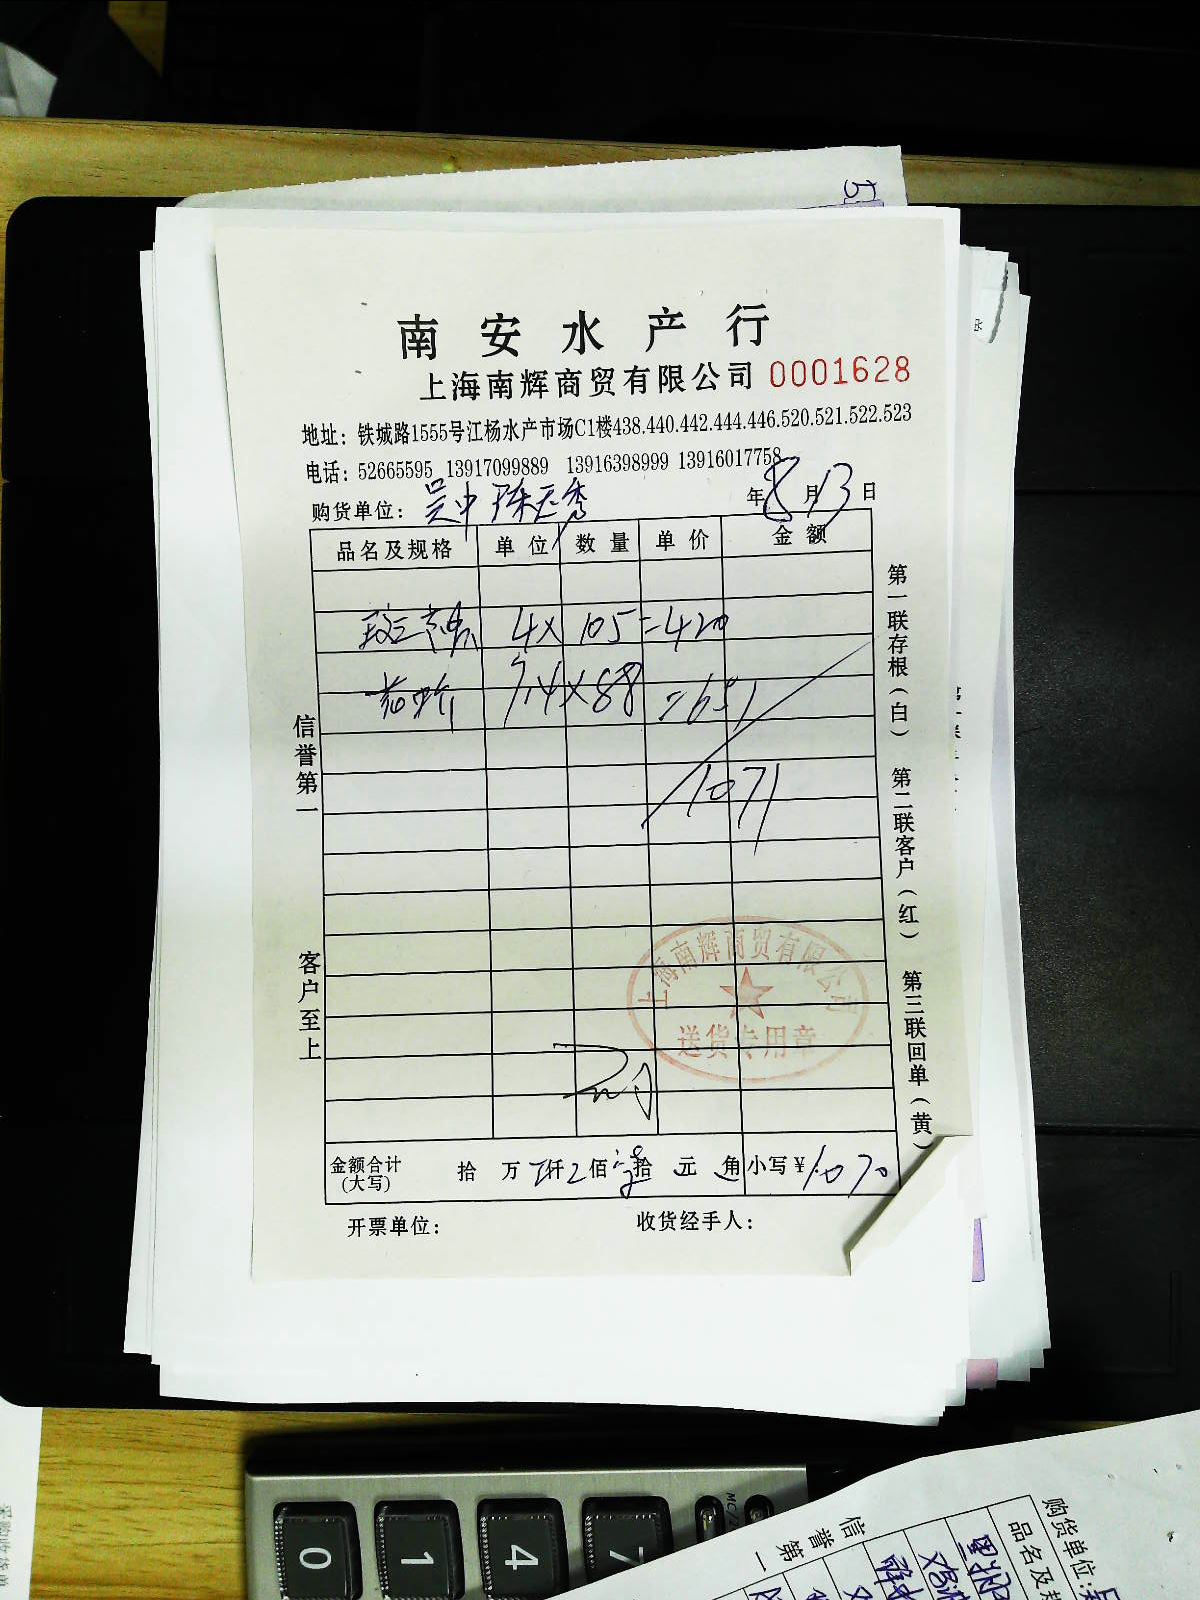 南安水产行
上海南辉商贸有限公司 0001628
地址：铁城路1555号江杨水产市场C1楼438.440.442.444.446.520.521.522.523
电话：52665595 13917099889 13916398999 13916017758
购货单位：吴中 年8月13日
品名及规格 单位 数量 单价 金额
4× 105=420
7.4×88 =651
1071
信誉第一
客户至上
第一联存根(白) 第二联客户(红) 第三联回单(黄)
上海南辉商贸有限公司
送货专用章
金额合计(大写) 拾 万 仟 佰 拾 元 角 小写¥1070
开票单位： 收货经手人：
0
1
4
7
购货单位：
品名及规
信誉第一